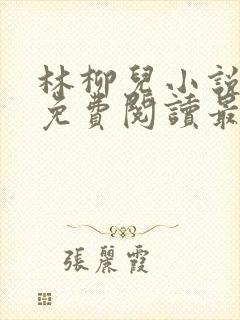 林柳兒小說
免費閱讀最
張麗霞